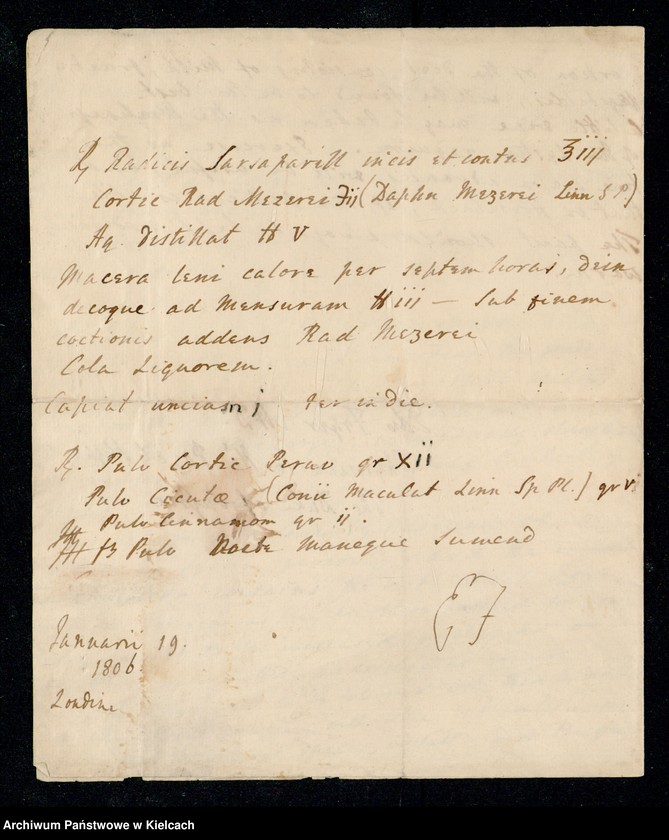 ℞ Radicis Sarsaparill incis et contus ℥iii
Cortic Rad Mezerei ʒii (Daphn Mezerei Linn S P.)
Aq distillat ℔ V
Macera leni calore per septem horas, dein
decoque ad mensuram ℔ iii — Sub finem
coctionis addens Rad Mezerei
Cola Liquorem.
Capiat unciam j ter in die.
℞. Pulv Cortic Peruv gr XII
Pulv Cicutæ (Conii Maculat Linn Sp Pl.) gr
Pulv Cinnamom gr ii.
Pulv Nocte Maneque Sumend
Januarii 19.
1806
Londini
Archiwum Państwowe w Kielcach